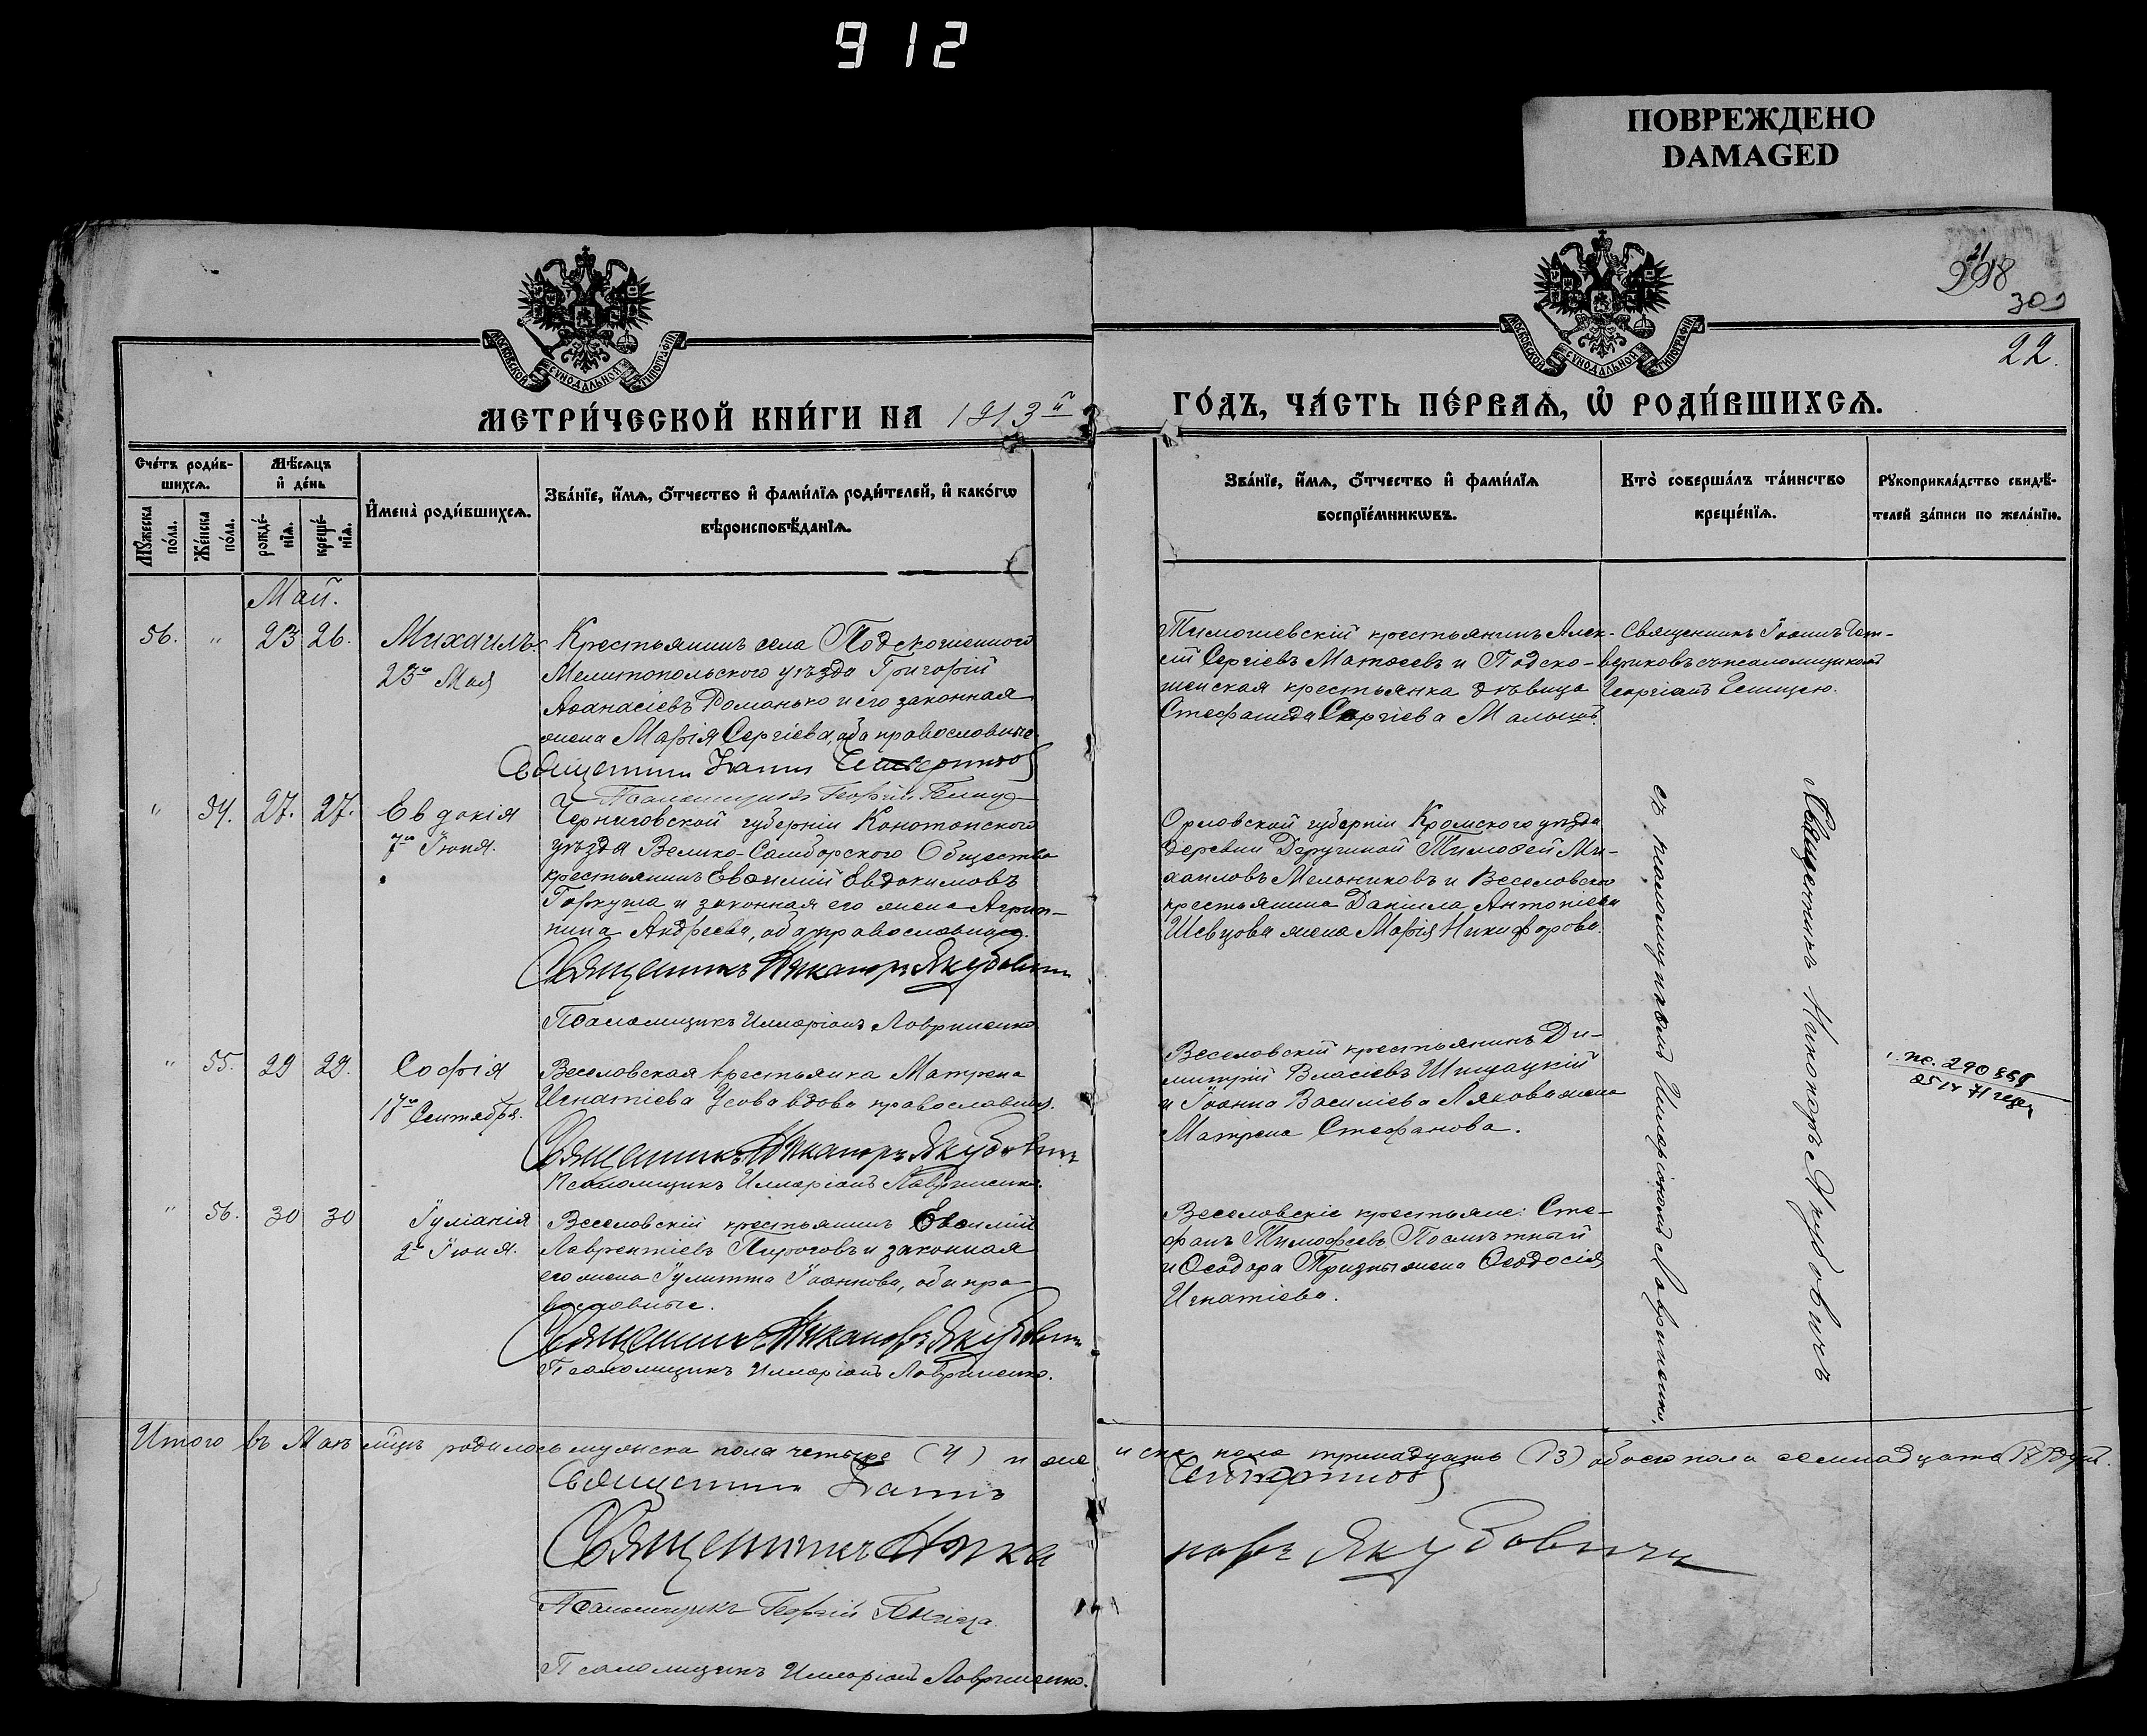 912
ПОВРЕЖДЕНО
DAMAGED
298
309
22.
МОСКОВСКОЙ СѴНОДАЛЬНОЙ ТИПОГРАФІИ
МОСКОВСКОЙ СѴНОДАЛЬНОЙ ТИПОГРАФІИ
МЕТРИ́ЧЕСКОЙ КНИ́ГИ НА 1913й
ГО́ДЪ, ЧА́СТЬ ПЕ́РВАѦ, Ѡ҆ РОДИ́ВШИХСѦ.
Сче́тъ роди́в-
шихсѧ.
Мѣ́сѧцъ
и҆ де́нь
Мꙋ́жеска по́ла.
Же́нска по́ла.
рожде́-
нїѧ.
креще́-
нїѧ.
И҆мена̀ роди́вшихсѧ.
Зва́нїе, и҆́мѧ, ѻ҆́тчество и҆ фами́лїѧ роди́телей, и҆ како́гѡ
вѣроисповѣ́данїѧ.
Зва́нїе, и҆́мѧ, ѻ҆́тчество и҆ фами́лїѧ
воспрїе́мникѡвъ.
Кто̀ соверша́лъ та́инство
креще́нїѧ.
Рꙋкоприкла́дство свидѣ́-
телей за́писи по жела́нїю.
Май.
56. " 23 26. Михаилъ
23го Мая
Крестьянинъ села Подскошенного
Мелитопольского уѣзда Григорій
Аѳанасіевъ Романько и его законная
жена Марія Сергіева, оба православные.
Священникъ Іоаннъ Четвериковъ
Псаломщикъ Георгій
Тимошевскій крестьянинъ Алек-
сій Сергіевъ Матѳеевъ и Подско-
шенская крестьянка дѣвица
Стефанида Сергіева
Священникъ Іоаннъ Чет-
вериковъ съ псаломщикомъ
Георгіемъ
" 54. 27. 27. Евдокія
7го Іюня.
Черниговской губерніи Конотопского
уѣзда Велико-Самборского Общества
крестьянинъ Евѳимій Евдокимовъ
Гаркуша и законная его жена Агрип-
пина Андреева, оба православные.
Священникъ Никаноръ Якубовичъ
Псаломщикъ Илларіонъ Лавриненко
Орловской губерніи Кромского уѣзда
деревни Тимоѳей Ми-
хаиловъ Мельниковъ и Веселовского
крестьянина Даніила Антоніева
Шевцова жена Марія Никифорова.
Священникъ Никаноръ Якубовичъ
съ псаломщикомъ Илларіономъ Лавриненко.
" 55. 29 29. Софія
17го Сентября.
Веселовская крестьянка Матрена
Игнатіева Усова вдова православная.
Священникъ Никаноръ Якубовичъ
Псаломщикъ Илларіонъ Лавриненко.
Веселовскій крестьянинъ Ди-
митрій Власіевъ Шишацкій
и Іоанна Василіева Ляхова жена
Матрена Стефанова.
" 56. 30 30 Іуліанія
2го Іюня.
Веселовскій крестьянинъ Евѳимій
Лаврентіевъ Пироговъ и законная
его жена Іулитта Іоаннова, оба пра
вославные.
Священникъ Никаноръ Якубовичъ
Псаломщикъ Илларіонъ Лавриненко.
Веселовскіе крестьяне: Сте-
фанъ Тимофеевъ
и Ѳеодора жена Ѳеодосія
Игнатіева.
Итого въ Маѣ м-цѣ родилось мужска пола четыре (4) и же нска пола тринадцать (13) обоего пола семнадцать (17) душ.
Священникъ Іоаннъ Четвериковъ
Священникъ Никаноръ Якубовичъ
Псаломщикъ Георгій
Псаломщикъ Илларіонъ Лавриненко.